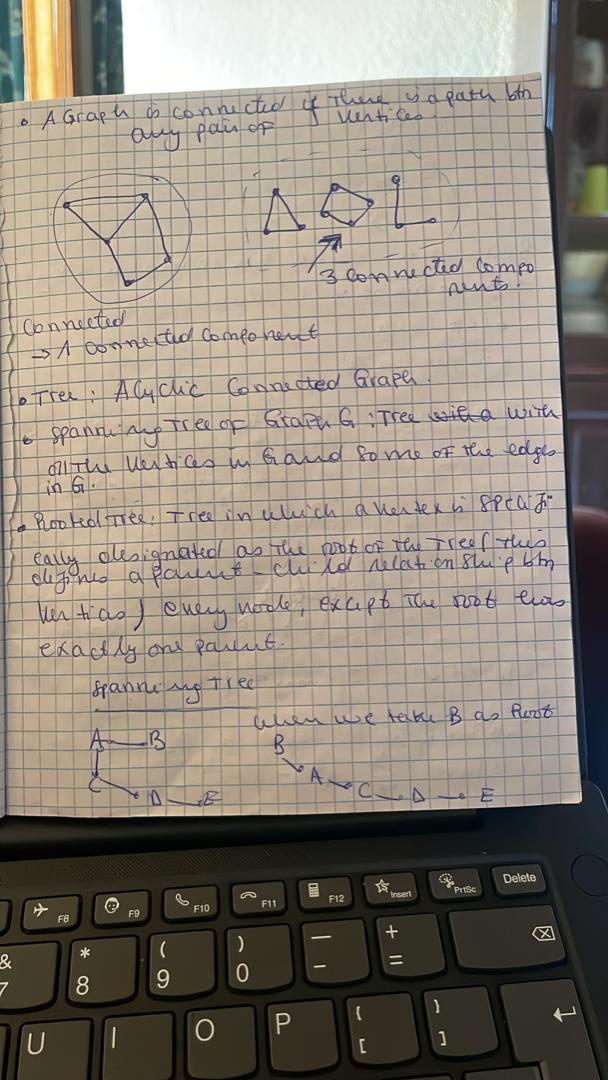 • A Graph is connected if There is a path btn
any pair of vertices
3 Connected Compo
nents.
Connected
→ 1 connected component
• Tree: Acyclic Connected Graph.
• Spanning Tree of Graph G: Tree with a with
all The Vertices in G and some of the edges
in G.
• Rooted Tree: Tree in which a vertex is specifi
cally designated as the root of the Tree (this
defines a parent-child relationship btn
Vertices) every node, except the root has
exactly one parent.
Spanning Tree
when we take B as Root
A B
C D E
B
A C D E
F8 F9 F10 F11 F12 Insert PrtSc Delete
& * ( ) — +
7 8 9 0 - =
U I O P { [ } ]